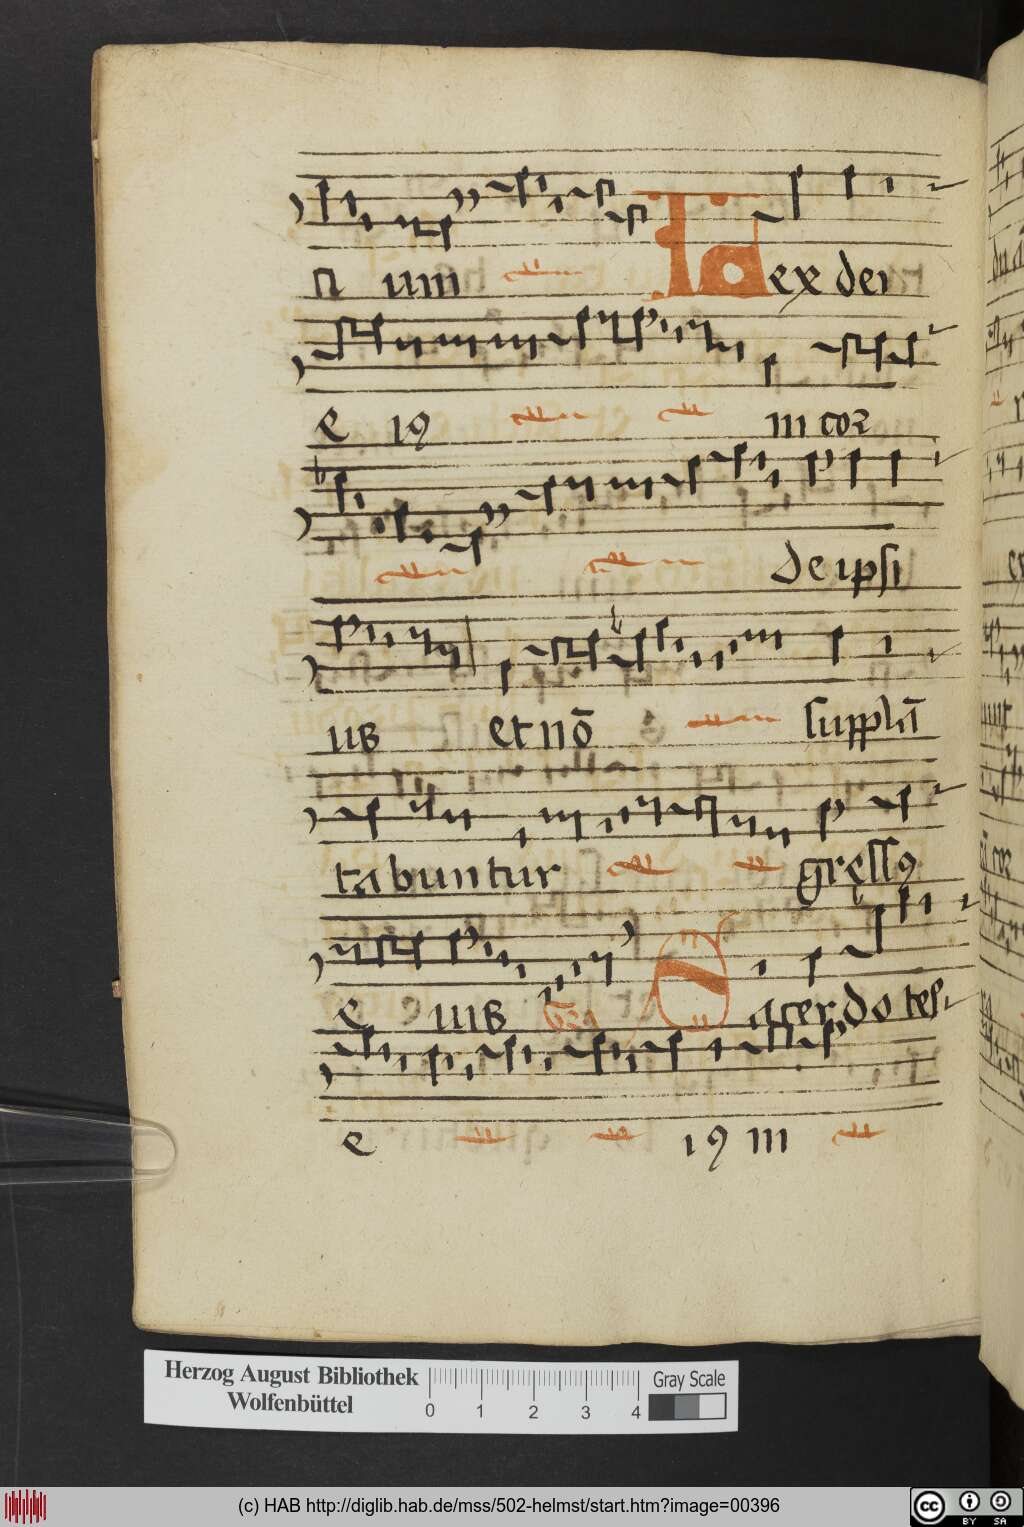 n um Lex dei
e ı9 in coꝛ
de ipsi
us et nō supplā
tabuntur gręss9
e ius Tra Sacerdotes
e ı9 in
Herzog August Bibliothek
Wolfenbüttel
0 1 2 3 4
Gray Scale
(c) HAB http://diglib.hab.de/mss/502-helmst/start.htm?image=00396
cc BY SA